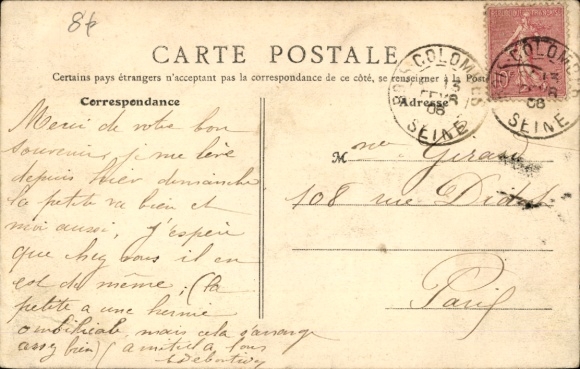 86
CARTE POSTALE
Certains pays étrangers n'acceptent pas la correspondance de ce côté, se renseigner à la Poste
Correspondance
Adresse
BOIS-COLOMBES
08
SEINE
BOIS-COLOMBES
08
SEINE
Merci de votre bon
souvenir, je me lève
depuis hier dimanche
la petite va bien et
moi aussi, j'espère
que chez vous il en
est de même, (la
petite a une hernie
ombilicale, mais cela s'arrange
assez bien) (amitié à tous
Mme Giraud
108 rue Didot
Paris